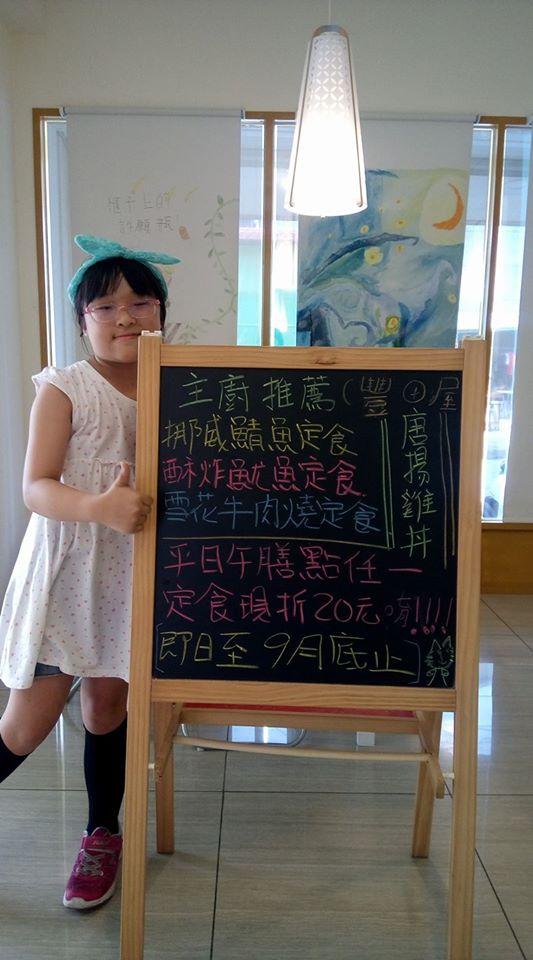 櫃子上的
許願瓶
主廚推薦(豐田屋
挪威鯖魚定食
酥炸魷魚定食
雪花牛肉燒定食
唐揚雞丼
平日午膳點任一
定食現折20元唷!!!!
[即日至9月底止]